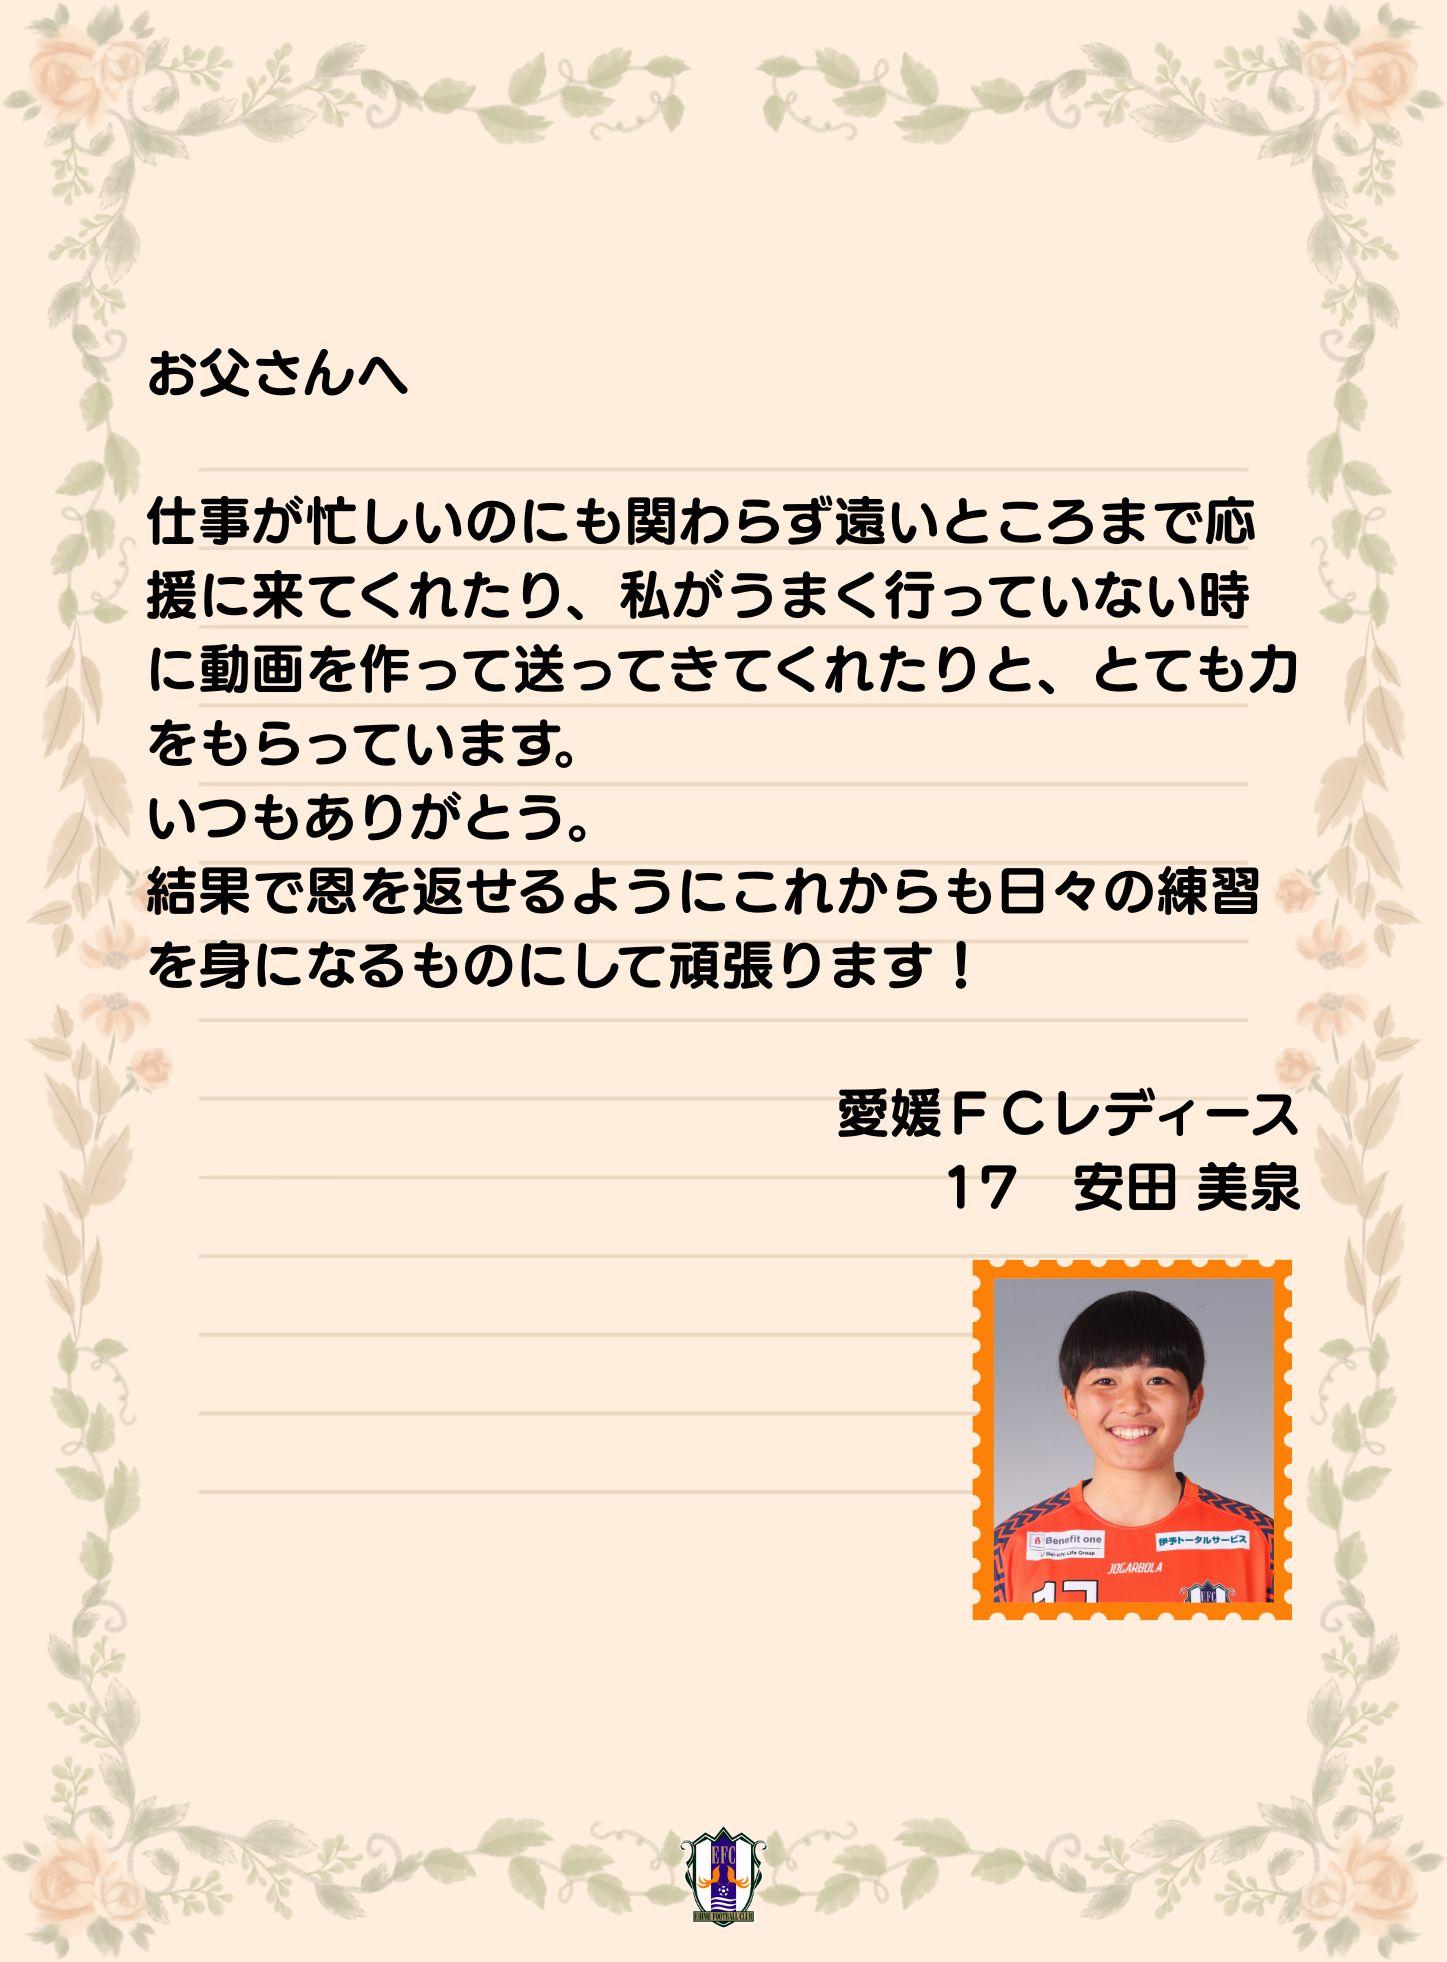 お父さんへ
仕事が忙しいのにも関わらず遠いところまで応
援に来てくれたり、私がうまく行っていない時
に動画を作って送ってきてくれたりと、とても力
をもらっています。
いつもありがとう。
結果で恩を返せるようにこれからも日々の練習
を身になるものにして頑張ります！
愛媛ＦＣレディース
17　安田 美泉
Benefit one
Dai-ichi Life Group
伊予トータルサービス
JOGARBOLA
17
EFC
EFC
EHIME FOOTBALL CLUB